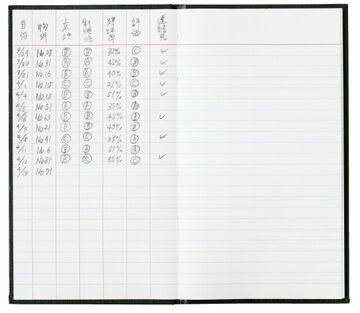 日付 物件 立地 利便性 建坪率 評価 連絡先
3/29 No.25 Ⓑ Ⓑ 35% Ⓒ ✓
3/30 No.31 Ⓐ Ⓐ 45% Ⓑ ✓
3/31 No.16 Ⓑ Ⓐ 40% Ⓑ ✓
4/1 No.105 Ⓒ Ⓒ 25% Ⓒ ✓
4/4 No.13 Ⓑ Ⓑ 51% Ⓑ ✓
4/5 No.51 Ⓐ Ⓐ 35% Ⓐ
4/6 No.65 Ⓑ Ⓑ 45% Ⓑ ✓
4/7 No.21 Ⓑ Ⓑ 40% Ⓑ
4/8 No.41 Ⓒ Ⓒ 23% Ⓐ ✓
4/11 No.6 Ⓑ Ⓐ 51% Ⓐ
No.81 Ⓐ Ⓒ 35% Ⓒ ✓
4/13 No.71